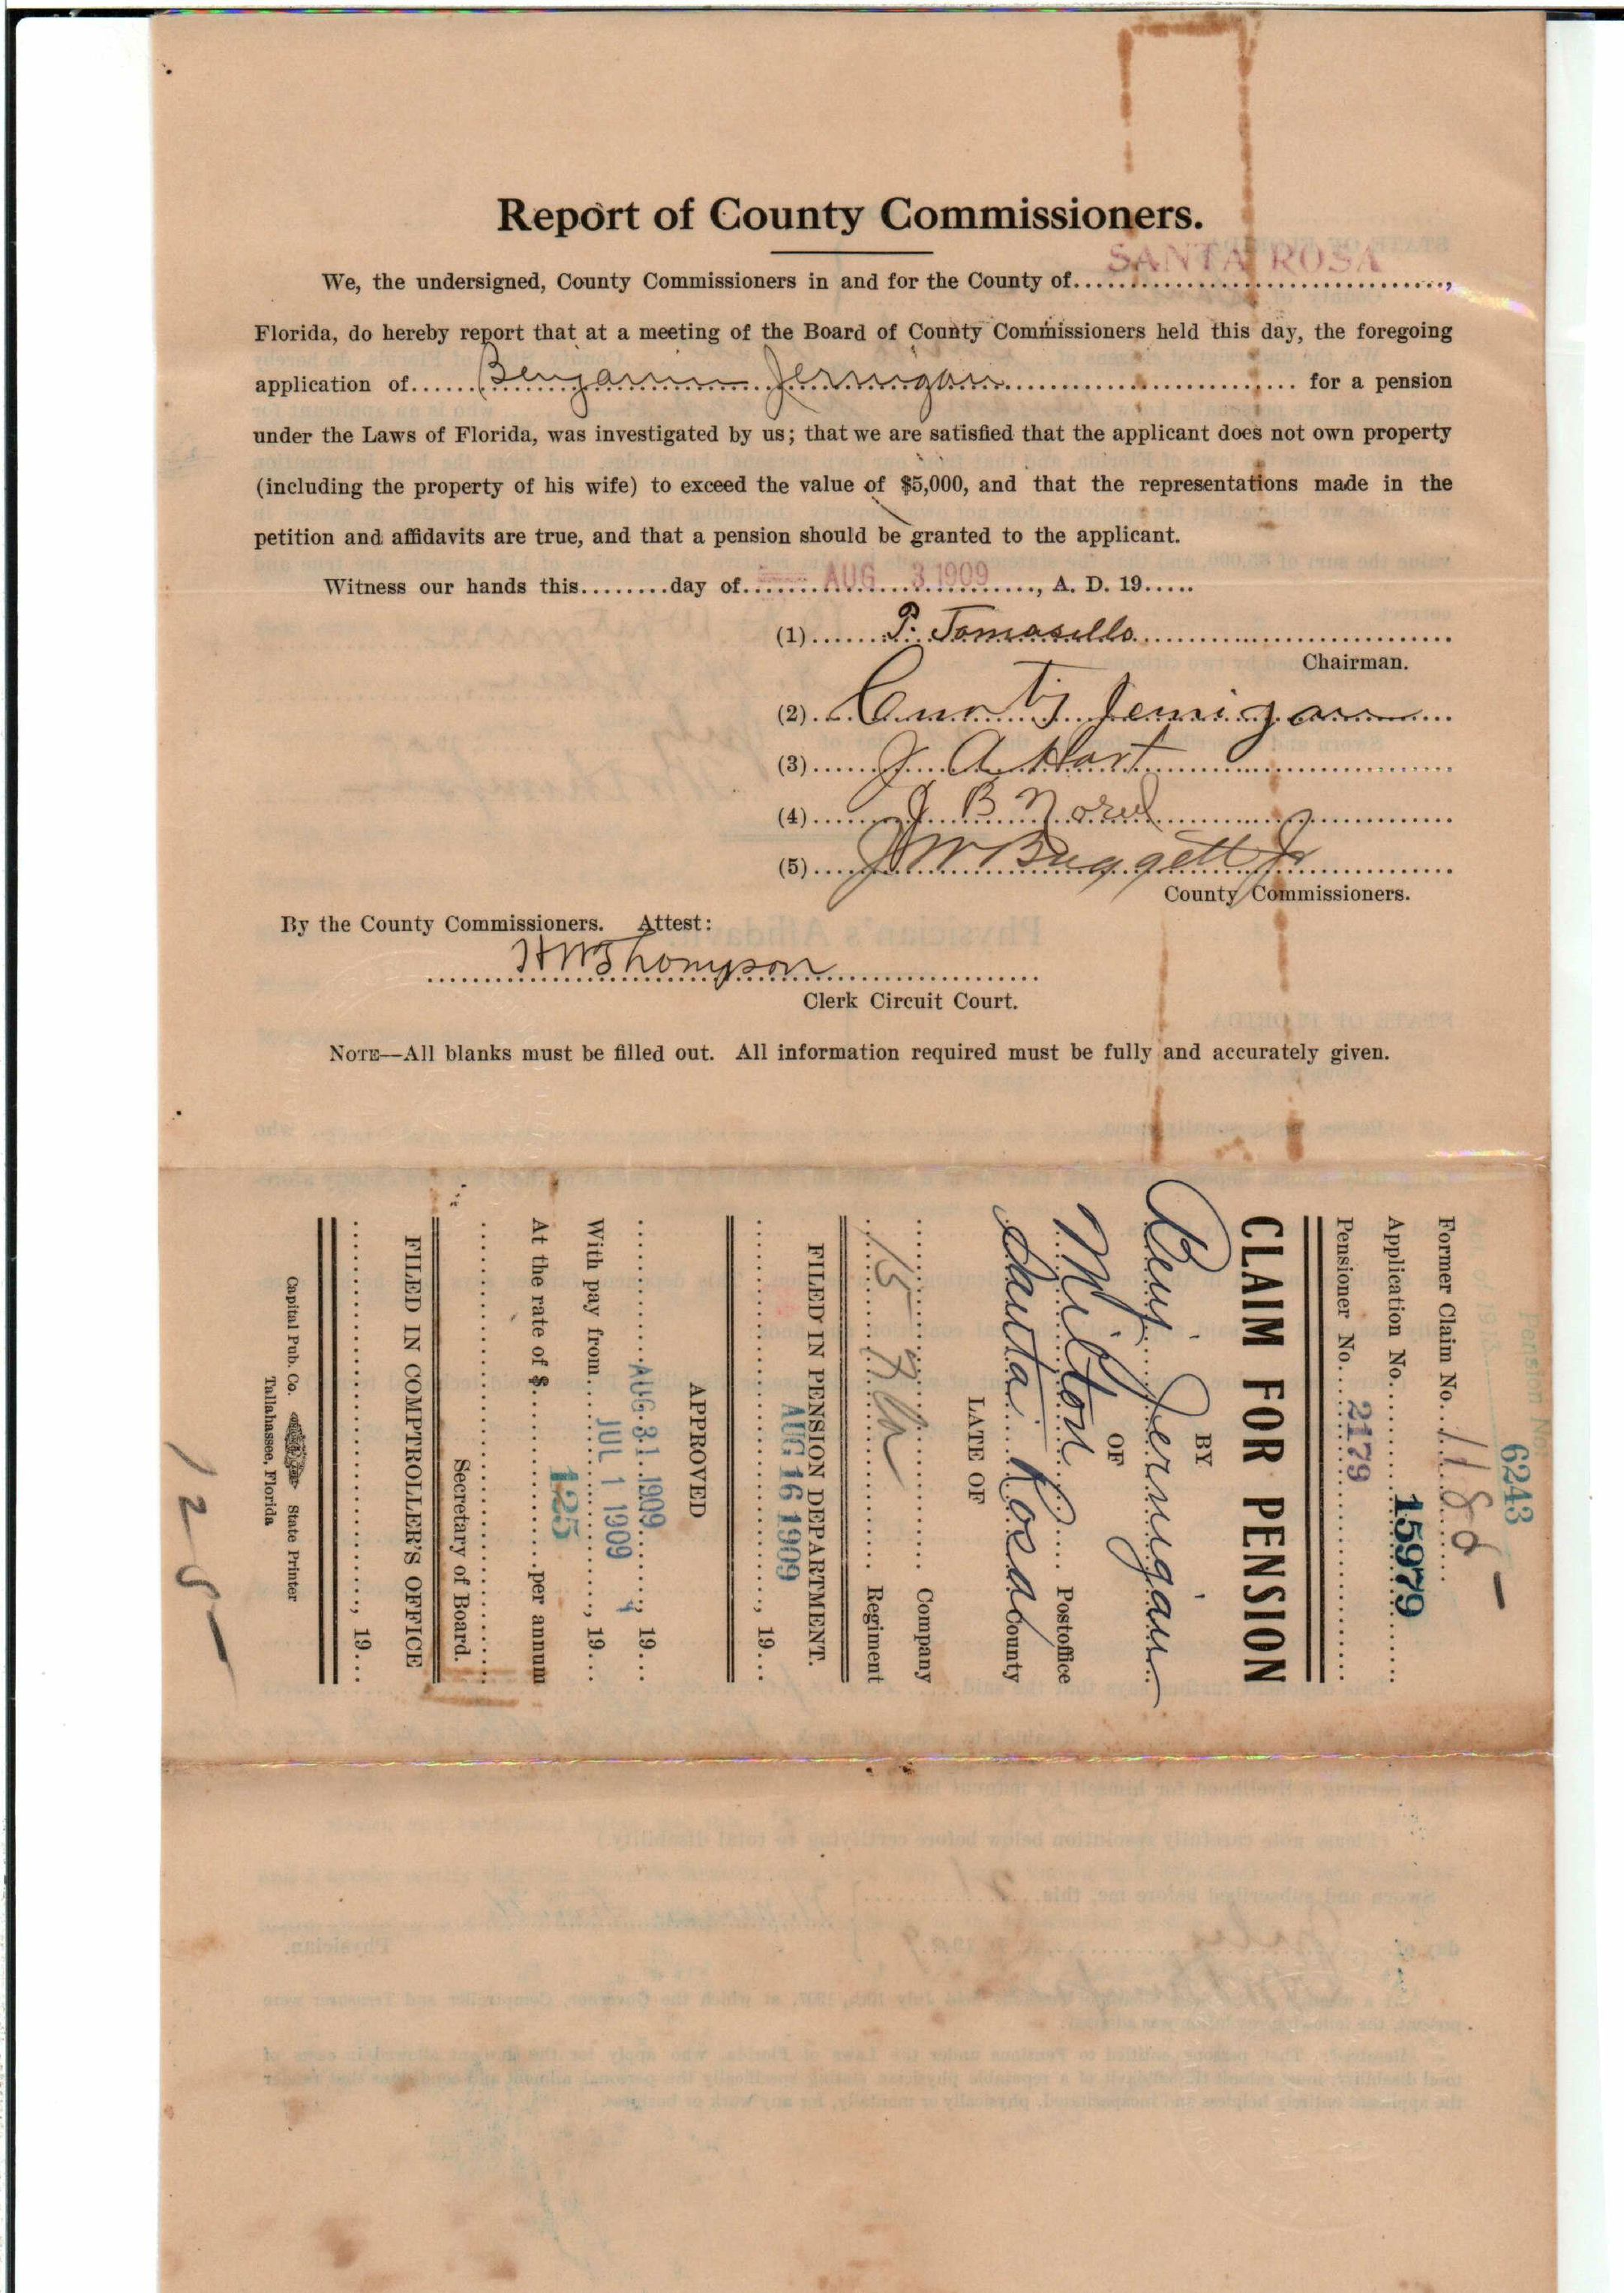 Report of County Commissioners.
We, the undersigned, County Commissioners in and for the County of SANTA ROSA,
Florida, do hereby report that at a meeting of the Board of County Commissioners held this day, the foregoing
application of Benjamin Jernigan for a pension
under the Laws of Florida, was investigated by us; that we are satisfied that the applicant does not own property
(including the property of his wife) to exceed the value of $5,000, and that the representations made in the
petition and affidavits are true, and that a pension should be granted to the applicant.
Witness our hands this........day of AUG 3 1909, A. D. 19.....
(1) P. Tomasello
Chairman.
(2) Curtis Jernigan
(3) J. A. Hart
(4) J B
(5) J W Baggett Jr
County Commissioners.
By the County Commissioners. Attest:
H W Thompson
Clerk Circuit Court.
NOTE—All blanks must be filled out. All information required must be fully and accurately given.
Pension No.
6243
Former Claim No. 1188
Application No. 15979
Pensioner No. 2179
CLAIM FOR PENSION
BY
Benj. Jernigan
OF
Milton Postoffice
Santa Rosa County
LATE OF
Company
15 Regiment
FILED IN PENSION DEPARTMENT.
AUG 16 1909, 19...
APPROVED
AUG 31 1909, 19...
With pay from JUL 1 1909, 19...
At the rate of $ 125 per annum
Secretary of Board.
FILED IN COMPTROLLER'S OFFICE
, 19...
Capital Pub. Co. State Printer
Tallahassee, Florida
125